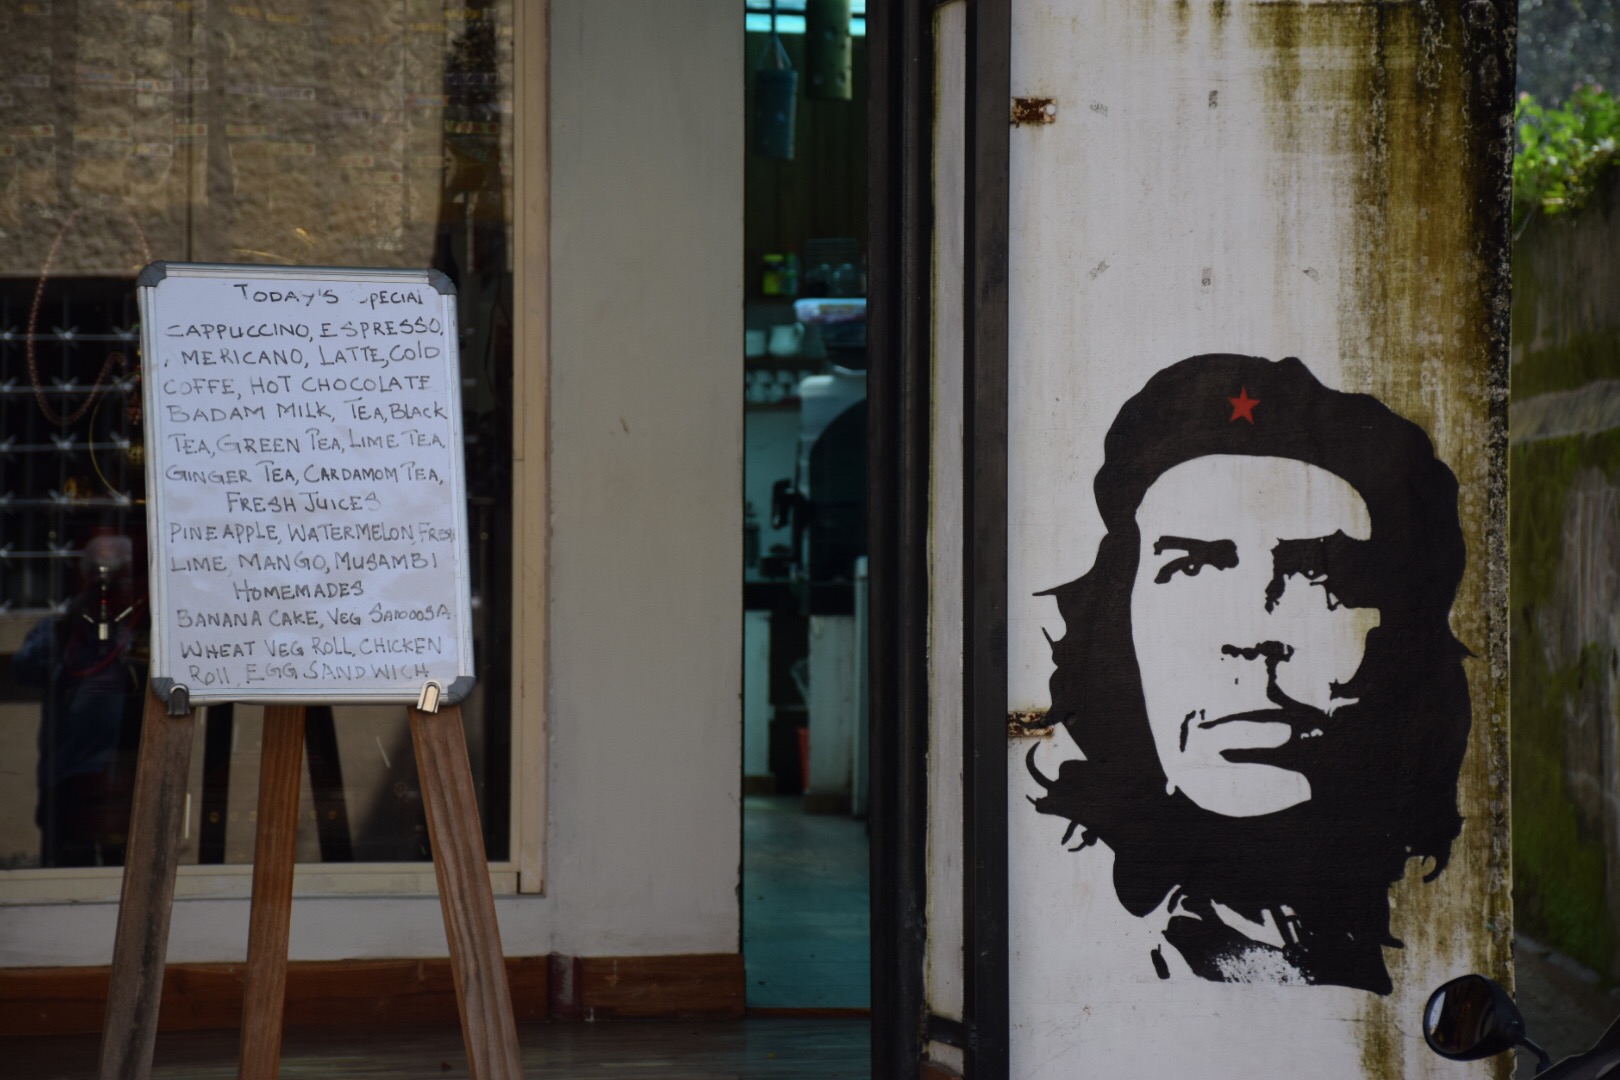 TODAY'S SPECIAL
CAPPUCCINO, ESPRESSO,
MERICANO, LATTE, COLD
COFFE, HOT CHOCOLATE
BADAM MILK, TEA, BLACK
TEA, GREEN TEA, LIME TEA,
GINGER TEA, CARDAMOM TEA,
FRESH JUICES
PINEAPPLE, WATERMELON FRESH
LIME, MANGO, MUSAMBI
HOMEMADES
BANANA CAKE, VEG
WHEAT VEG ROLL, CHICKEN
ROLL, EGG SANDWICH